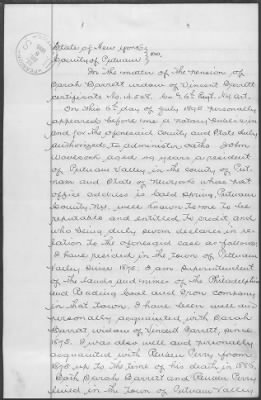 1
State of New York
County of Putnam } ss.
In the matter of the pension of
Sarah Barrett widow of Vincent Barrett
certificate No.
On this 6th day of July 1898 personally
appeared before me a notary
and for the aforesaid County and State duly
authorized to administer oaths John
aged years a resident
of Putnam Valley in the county of Put-
nam and State of New York whose post
office address is Cold Spring Putnam
County, N.Y. well known to me to be
reputable and entitled to credit and
who being duly sworn declares in re-
lation to the aforesaid case as follows:
I have resided in the town of Putnam
Valley since 1872. I am Superintendent
of the lands and mines of the Philadelphia
and Reading Coal and Iron Company
in that town. I have been well and
personally acquainted with Sarah
Barrett widow of Vincent Barrett, since
1873. I was also well and personally
acquainted with Reuben Perry from
1873 up to the time of his death in 1886.
Both Sarah Barrett and Reuben Perry
lived in the town of Putnam Valley,